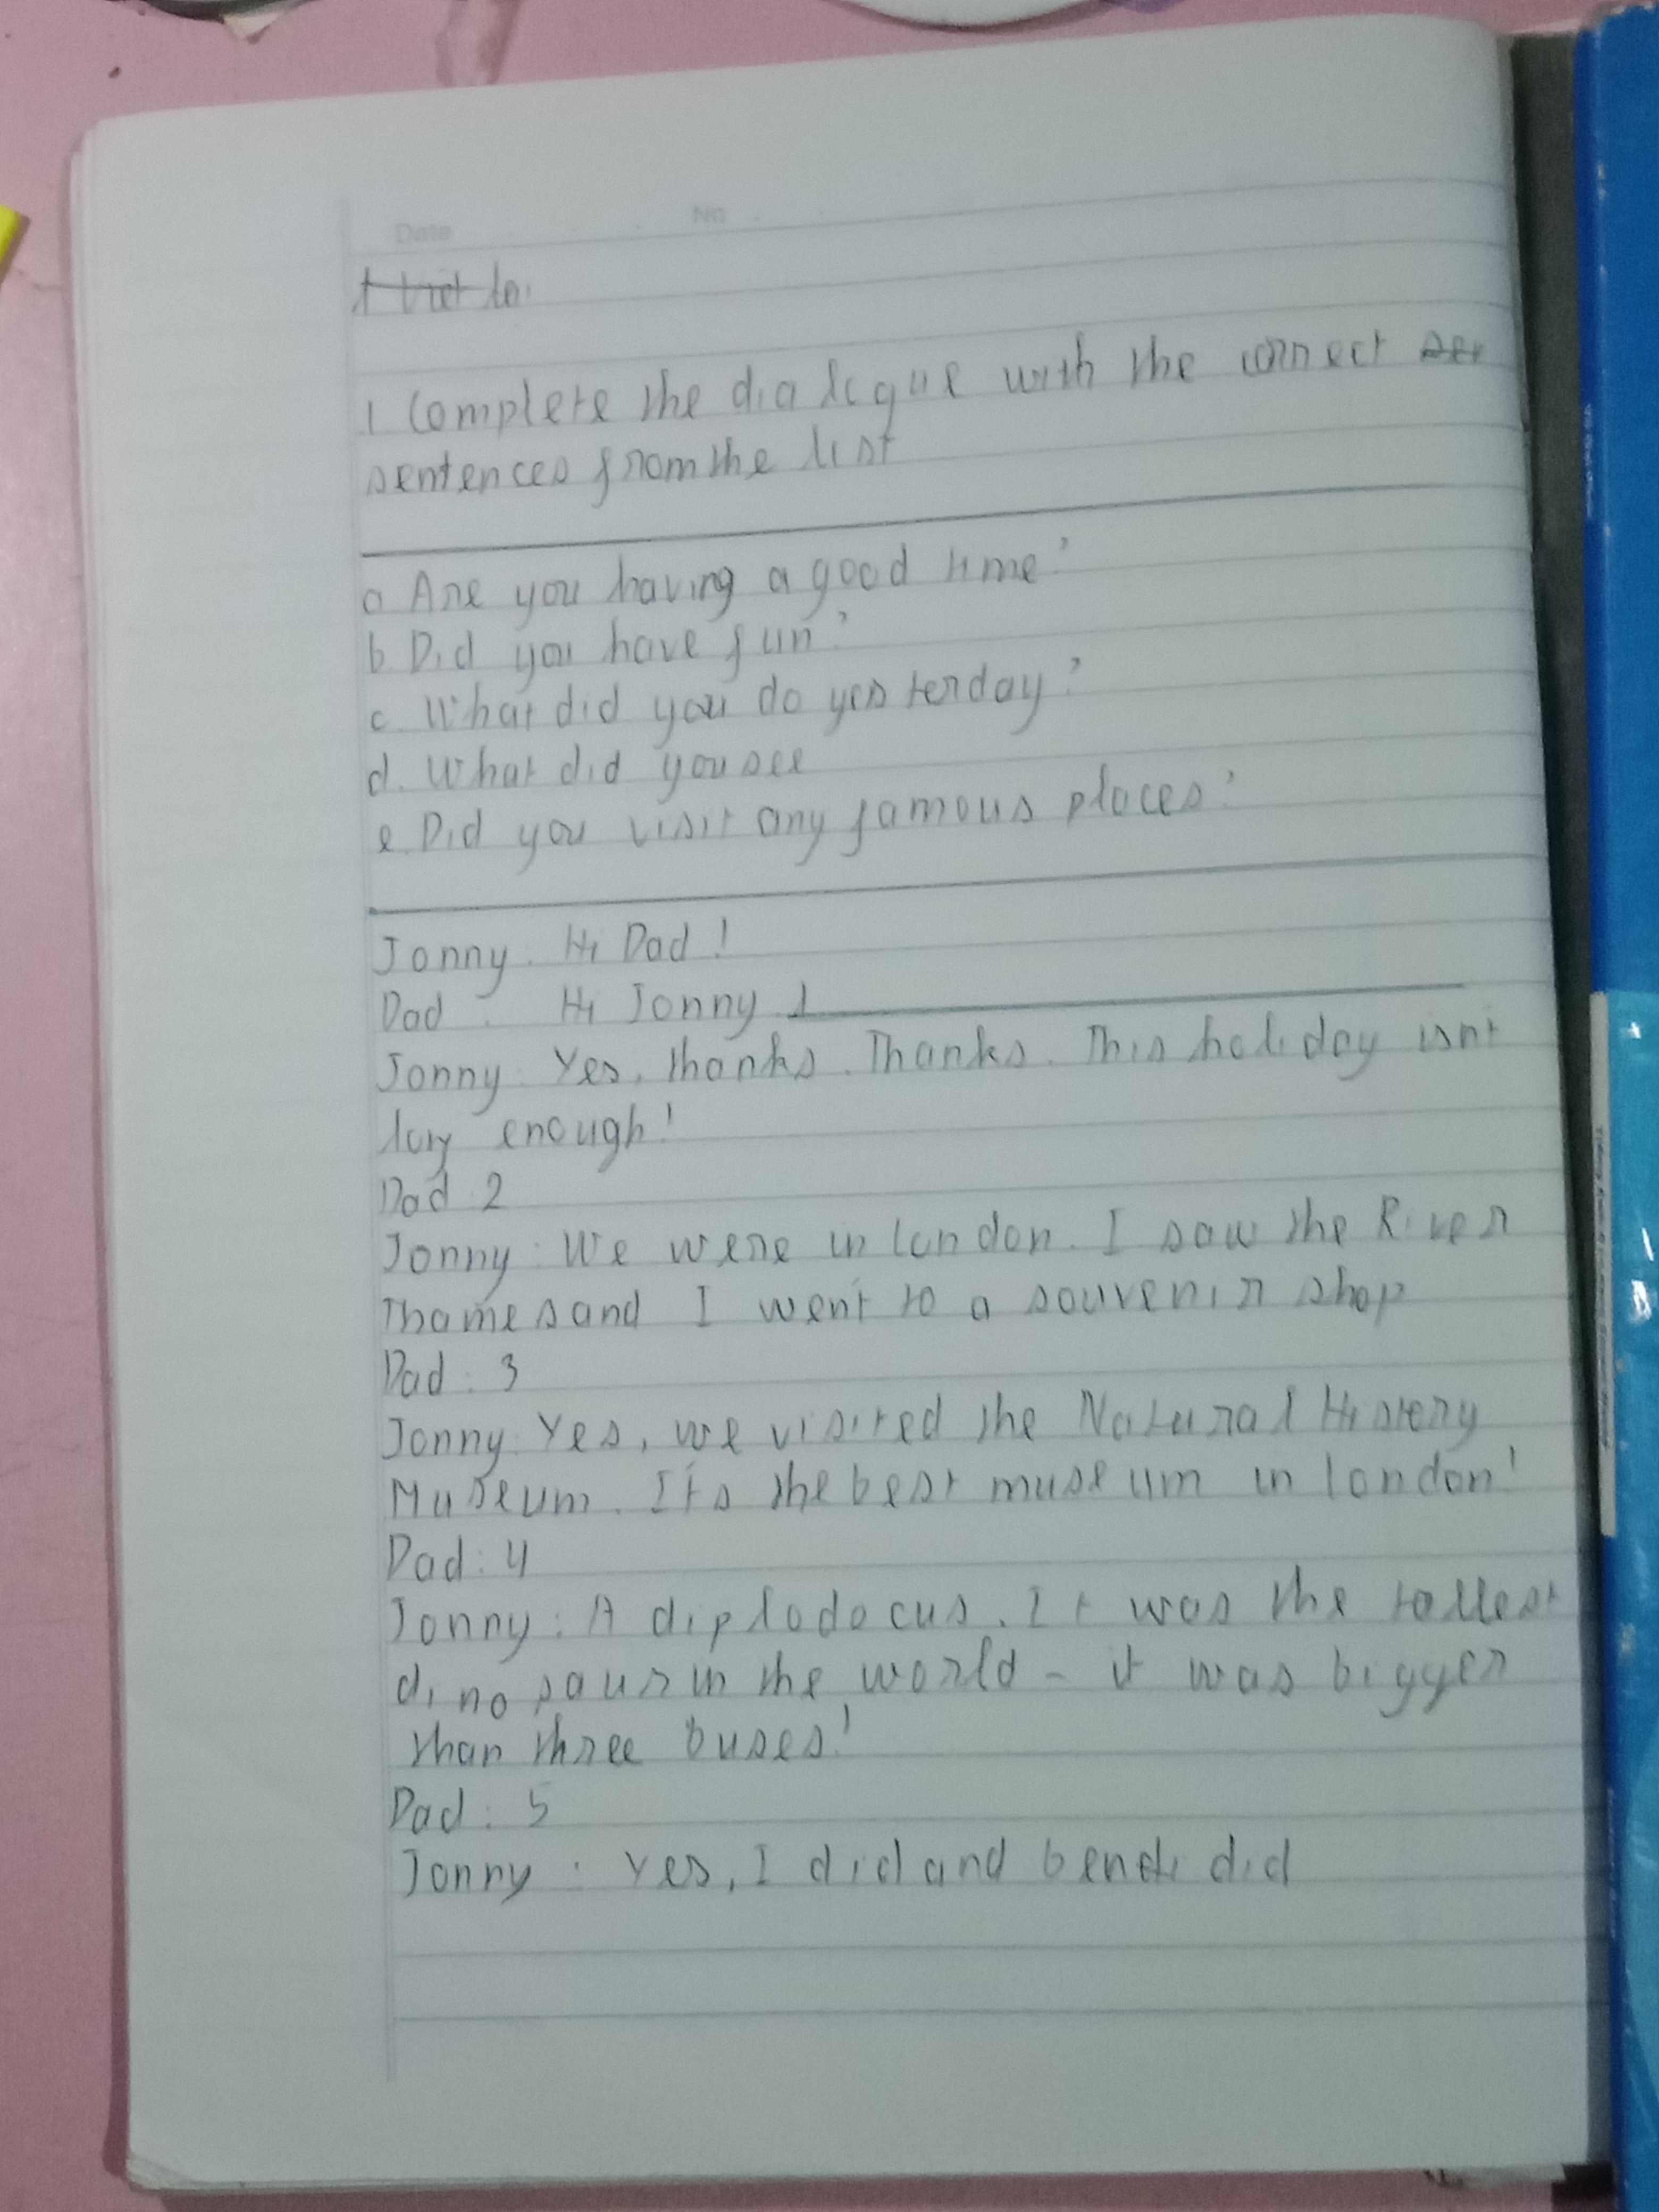 Date No
1 Complete the dialogue with the correct
sentences from the list
a Are you having a good time?
b. Did you have fun?
c. What did you do yesterday?
d. What did you see
e. Did you visit any famous places?
Jonny: Hi Dad!
Dad: Hi Jonny 1
Jonny: Yes, thanks. Thanks. This holiday isnt
long enough!
Dad 2
Jonny: We were in london. I saw the River
Thames and I went to a souvenir shop
Dad: 3
Jonny: Yes, we visited the Natural History
Museum. It's the best museum in london!
Dad: 4
Jonny: A diplodocus. It was the tallest
dinosaur in the world - it was bigger
than three buses!
Dad: 5
Jonny: Yes, I did and did